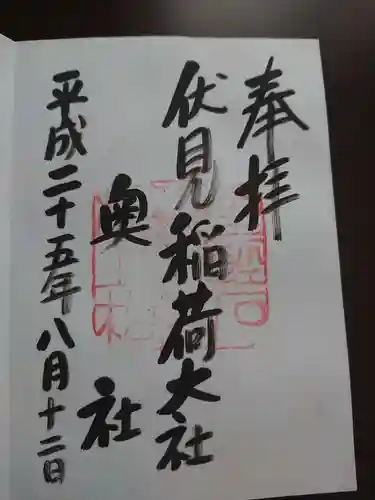 奉拝
伏見稲荷大社
奥社
平成二十五年八月十二日